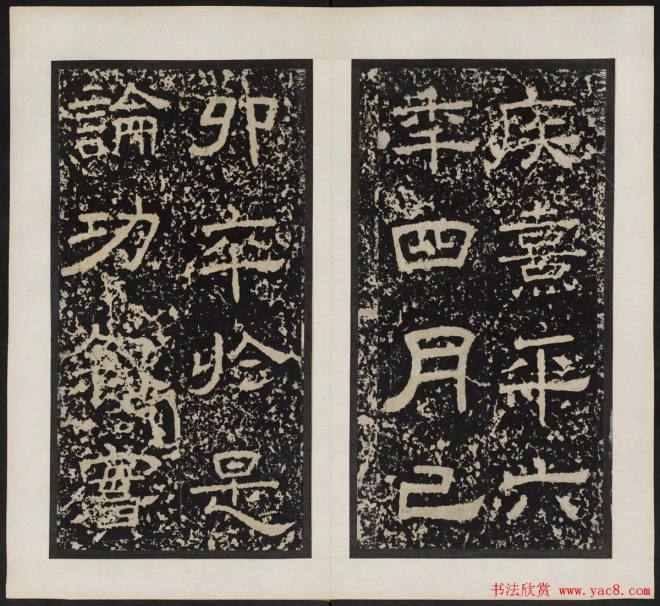 疾熹平六
年四月己
卯卒於是
論功叙實
书法欣赏 www.yac8.com